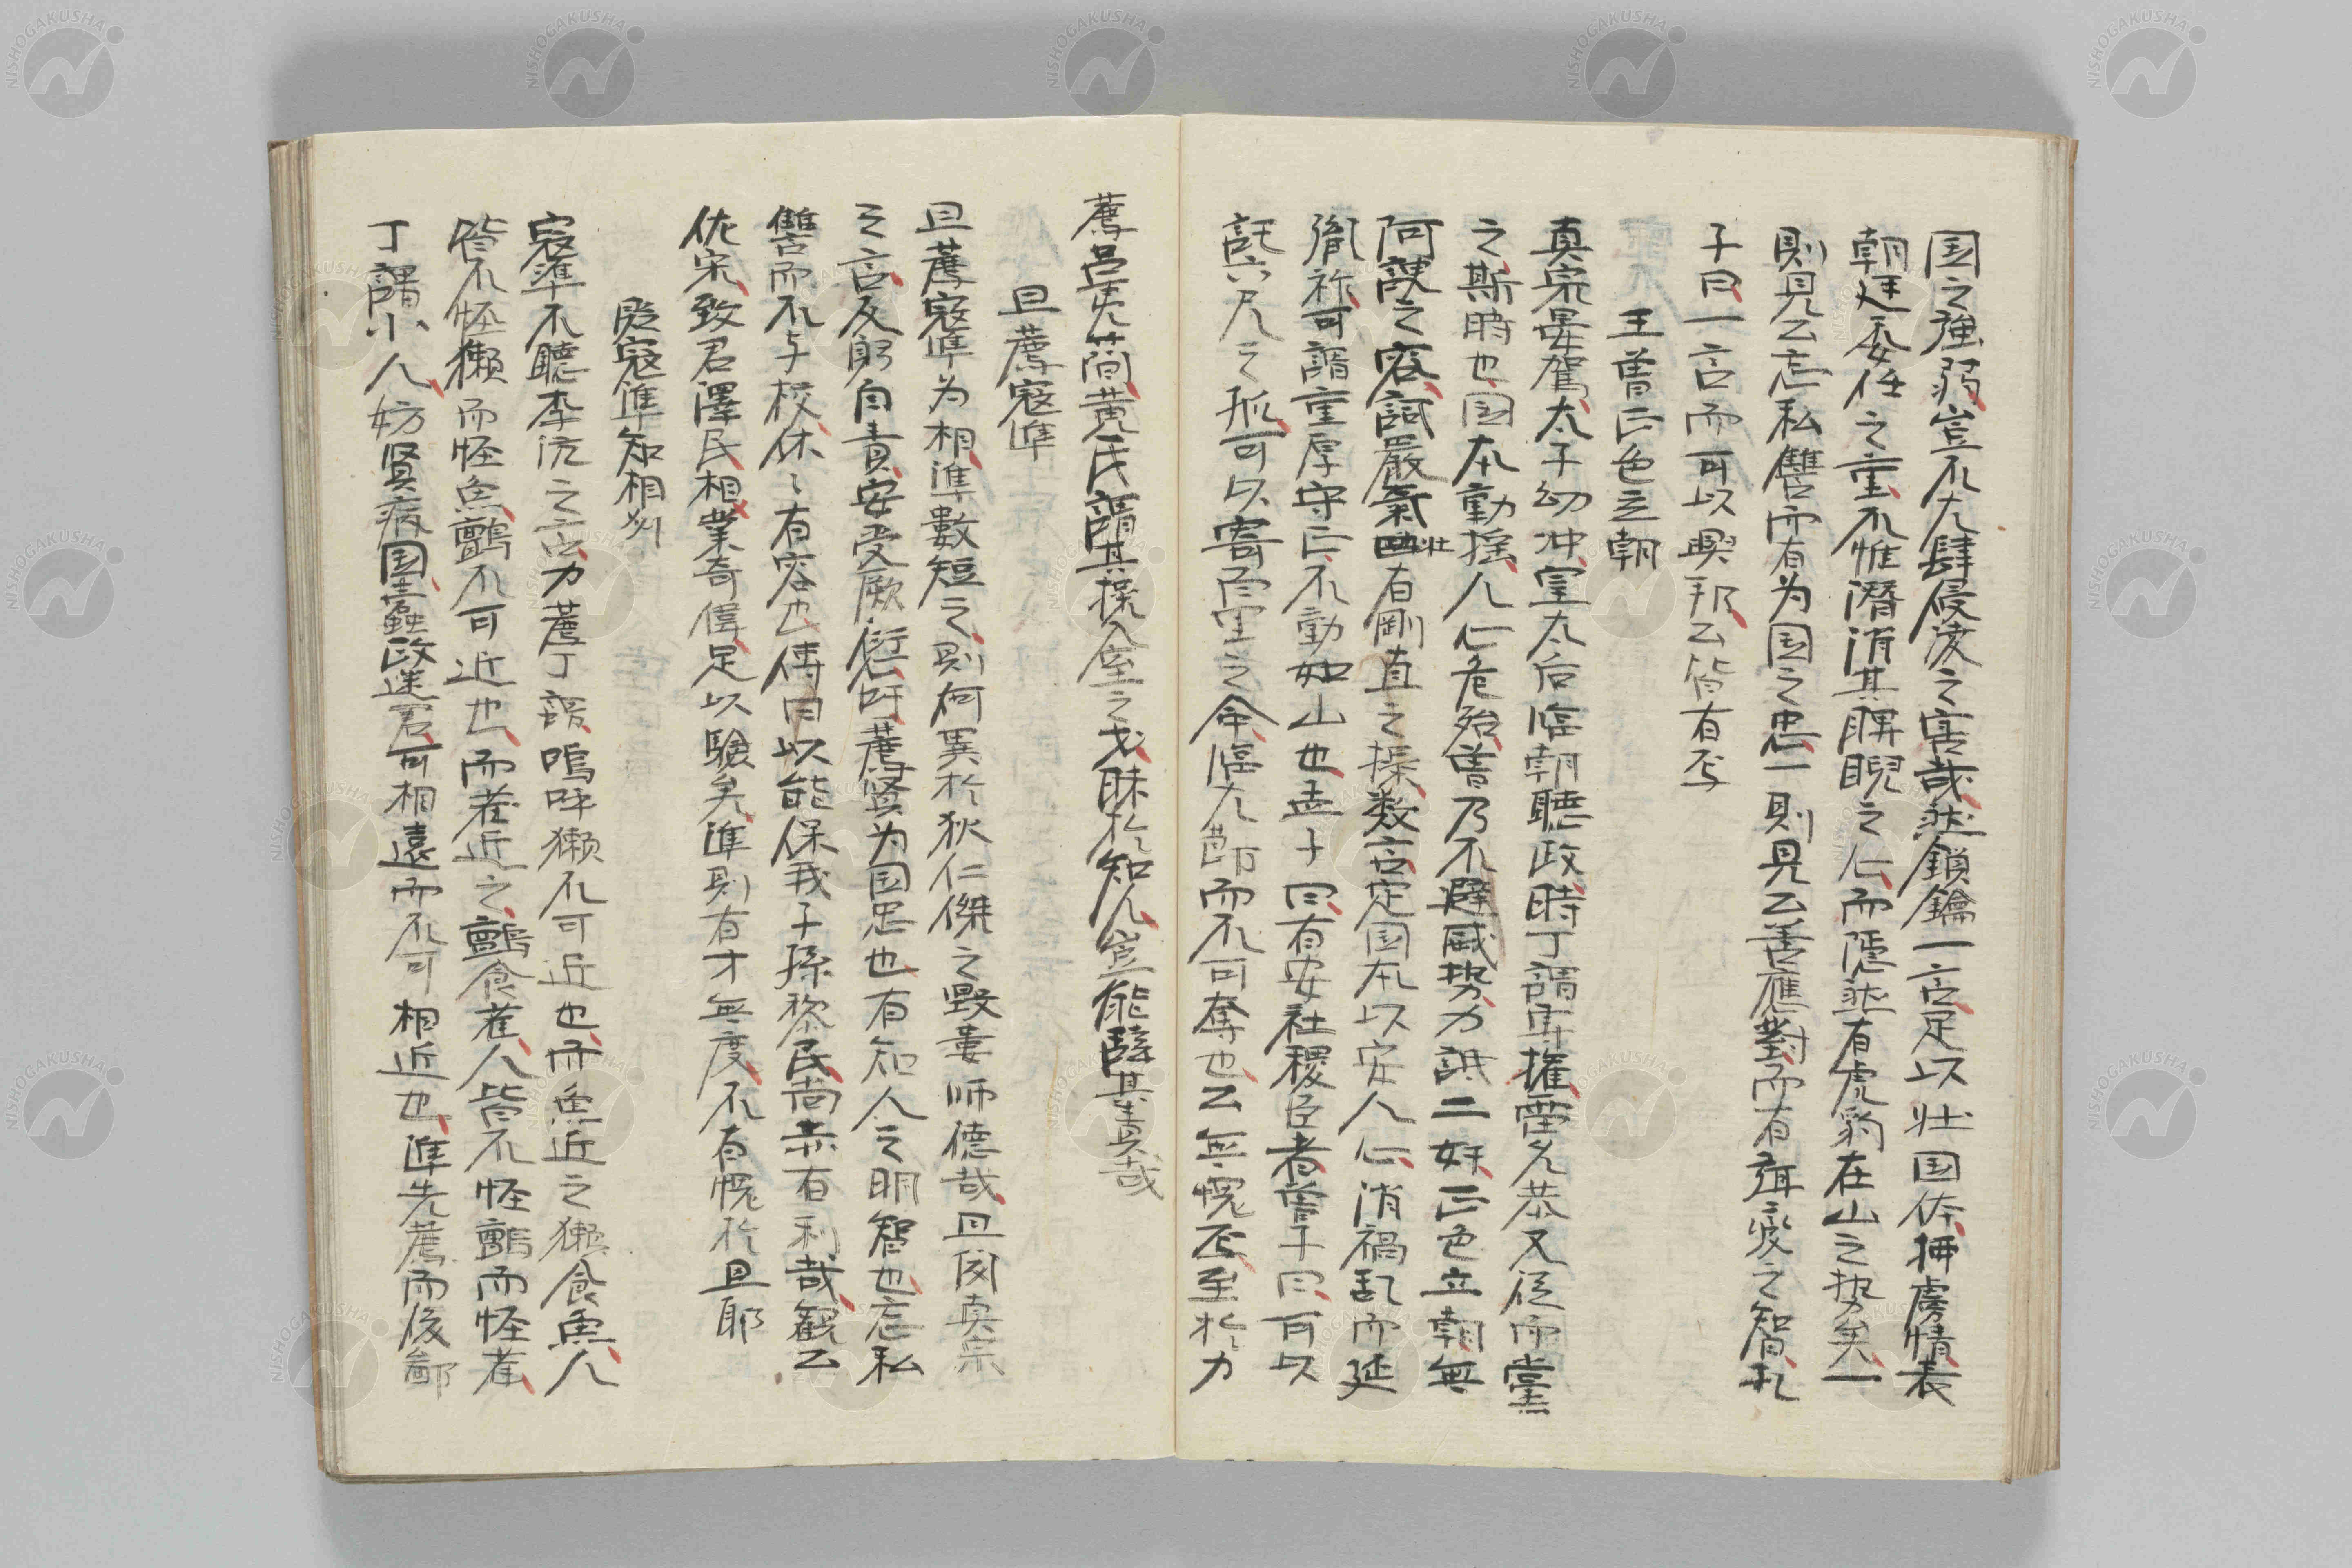 国之強弱豈不大肆侵凌之害哉然鎖鑰一言足以壮国体挿虜情表
朝廷委任之重不惟潜消其睥睨之心而隠然有虎豹在山之势矣一
則見公忘私讐而有为国之忠一則見公善應對而有弭変之智孔
子曰一言而可以興邦公皆有焉
王曽正色立朝
真宗晏駕太子幼冲皇太后臨朝聴政時丁謂専権雷允恭又従而黨
之斯時也国本動揺人心危殆曽乃不避威势力詆二奸正色立朝無
阿諛之容詞嚴氣壮有剛直之操数言定国本以安人心消禍乱而延
胤祚可謂重厚守正不動如山也孟子曰有安社稷臣者曽子曰可以
託六尺之孤可以寄百里之命臨大節而不可奪也公無愧焉至於力
薦呂夷簡黄氏謂其操金至之戈昧於知人豈能辞其責哉
旦薦寇準
旦薦寇準为相準數短之則何異於狄仁傑之毀婁师德哉旦因真宗
之言反躬自責安受厥愆吁薦賢为国忠也有知人之明智也忘私
讐而不与校休々有容也傳曰以能保我子孫黎民尚亦有利哉観公
佐宋致君澤民相業奇偉足以驗矣準則有才無度不有愧於旦耶
貶寇準知相州
寇準不聽李沆之言力薦丁謂嗚呼獺不可近也而魚近之獺食魚人
皆不怪獺而怪魚鸇不可近也而雀近之鸇食雀人皆不怪鸇而怪雀
丁謂小人妨賢病国蠹政迷君可相遠而不可相近也準先薦而後鄙
NISHOGAKUSHA